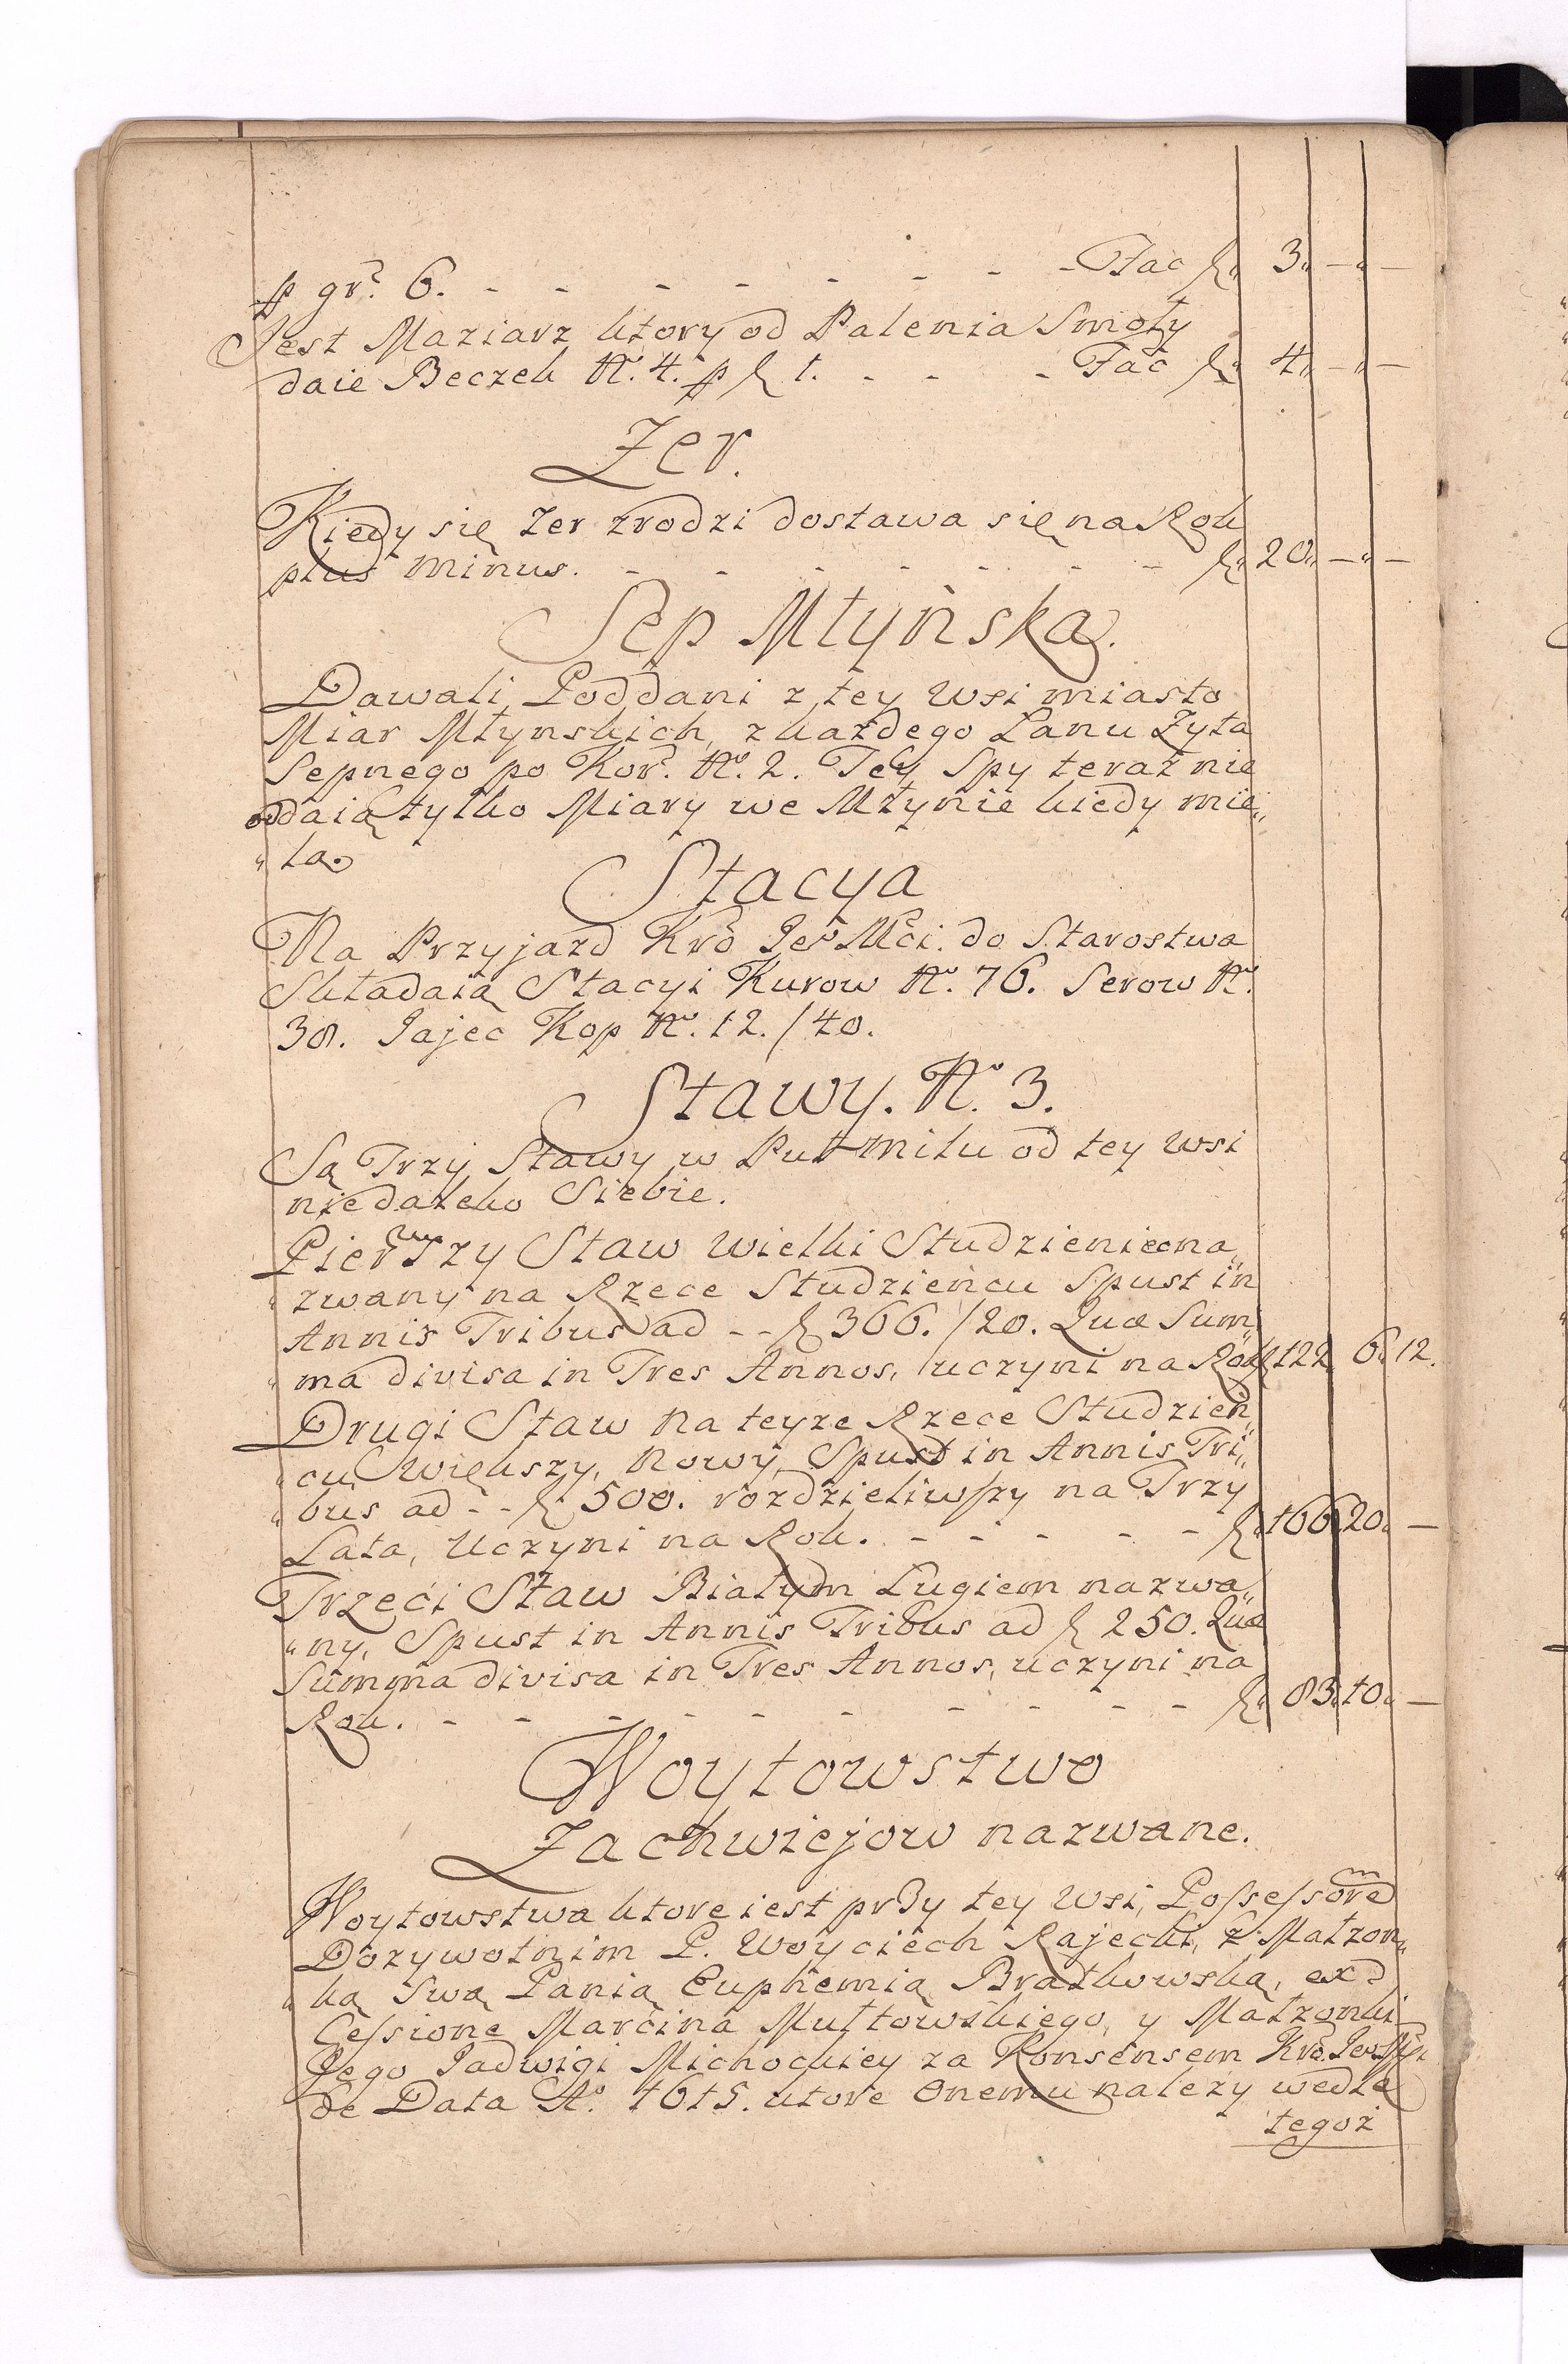 p gr. 6. - - - - - - - - Fac f. 3 „ — „ —
Jest Maziarz ktory od Palenia Smoły
daie Beczek No. 4. p f 1. - - - Fac f. 4 „ — „ —
Zer.
Kiedy się Zer zrodzi dostawa się na Rok
plus minus. - - - - - - - f. 20 „ — „ —
Sep Młyńska.
Dawali Poddani z tey Wsi miasto
Miar Młynskich, z kazdego Łanu Zyta
Sepnego po Kor. No. 2. Tey Spy teraz nie
oddaią tylko Miary we Młynie kiedy mie„
„la.
Stacya
Na Przyjazd Kro Jeo Mci. do Starostwa
Składaią Stacyi Kurow No. 76. Serow No.
38. Jajec Kop No. 12. / 40.
Stawy. No. 3.
Są Trzy Stawy w Puł milu od tey Wsi
niedaleko Siebie.
Pierwszy Staw Wielki Studzieniec na„
„zwany na Rzece Studzieńcu Spust in
Annis Tribus ad - - f 366. / 20. Quæ Sum„
„ma divisa in Tres Annos, uczyni na Rok f 122 „ 6 „ 12.
Drugi Staw na teyze Rzece Studzień„
„cu Większy, Nowy, Spust in Annis Tri„
„bus ad - - f. 500. rozdzieliwszy na Trzy
Lata, Uczyni na Rok. - - - - - - f. 166 „ 20 „ —
Trzeci Staw Białym Ługiem nazwa„
„ny, Spust in Annis Tribus ad f 250. Quæ
Summa divisa in Tres Annos, uczyni na
Rok. - - - - - - - - - - f. 83 „ 10 „ —
Woytowstwo
Zachwiejow nazwane.
Woytowstwa ktore iest przy tey Wsi, Possessorem
Dozywotnim P. Woyciech Rajecki, z Małzon„
„ką Swą Panią Euphemią Bratkowską, ex
Cessione Marcina Mułtowskiego, y Małzonki
Jego Jadwigi Michockiey za Konsensem Kro. Jeo
de Data Ao. 1615. ktore Onemu nalezy wedle
tegoz